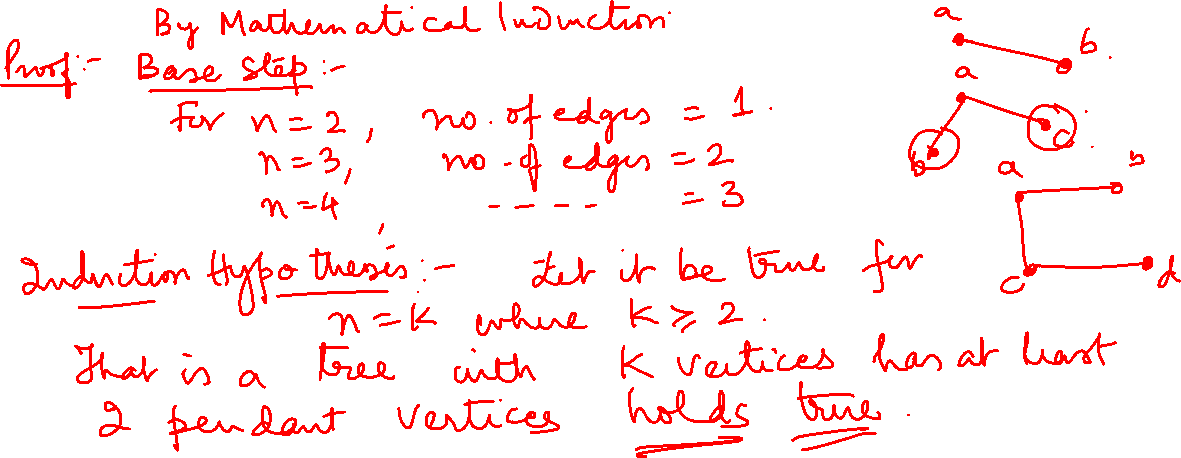 By Mathematical Induction
Proof:- Base Step:-
For n=2, no. of edges = 1.
n=3, no. of edges = 2
n=4, ---- = 3
Induction Hypothesis:- Let it be true for
n=k where k≥2.
That is a tree with k vertices has at least
2 pendant vertices holds true.
a
b.
a
b
c
a
b
c
d